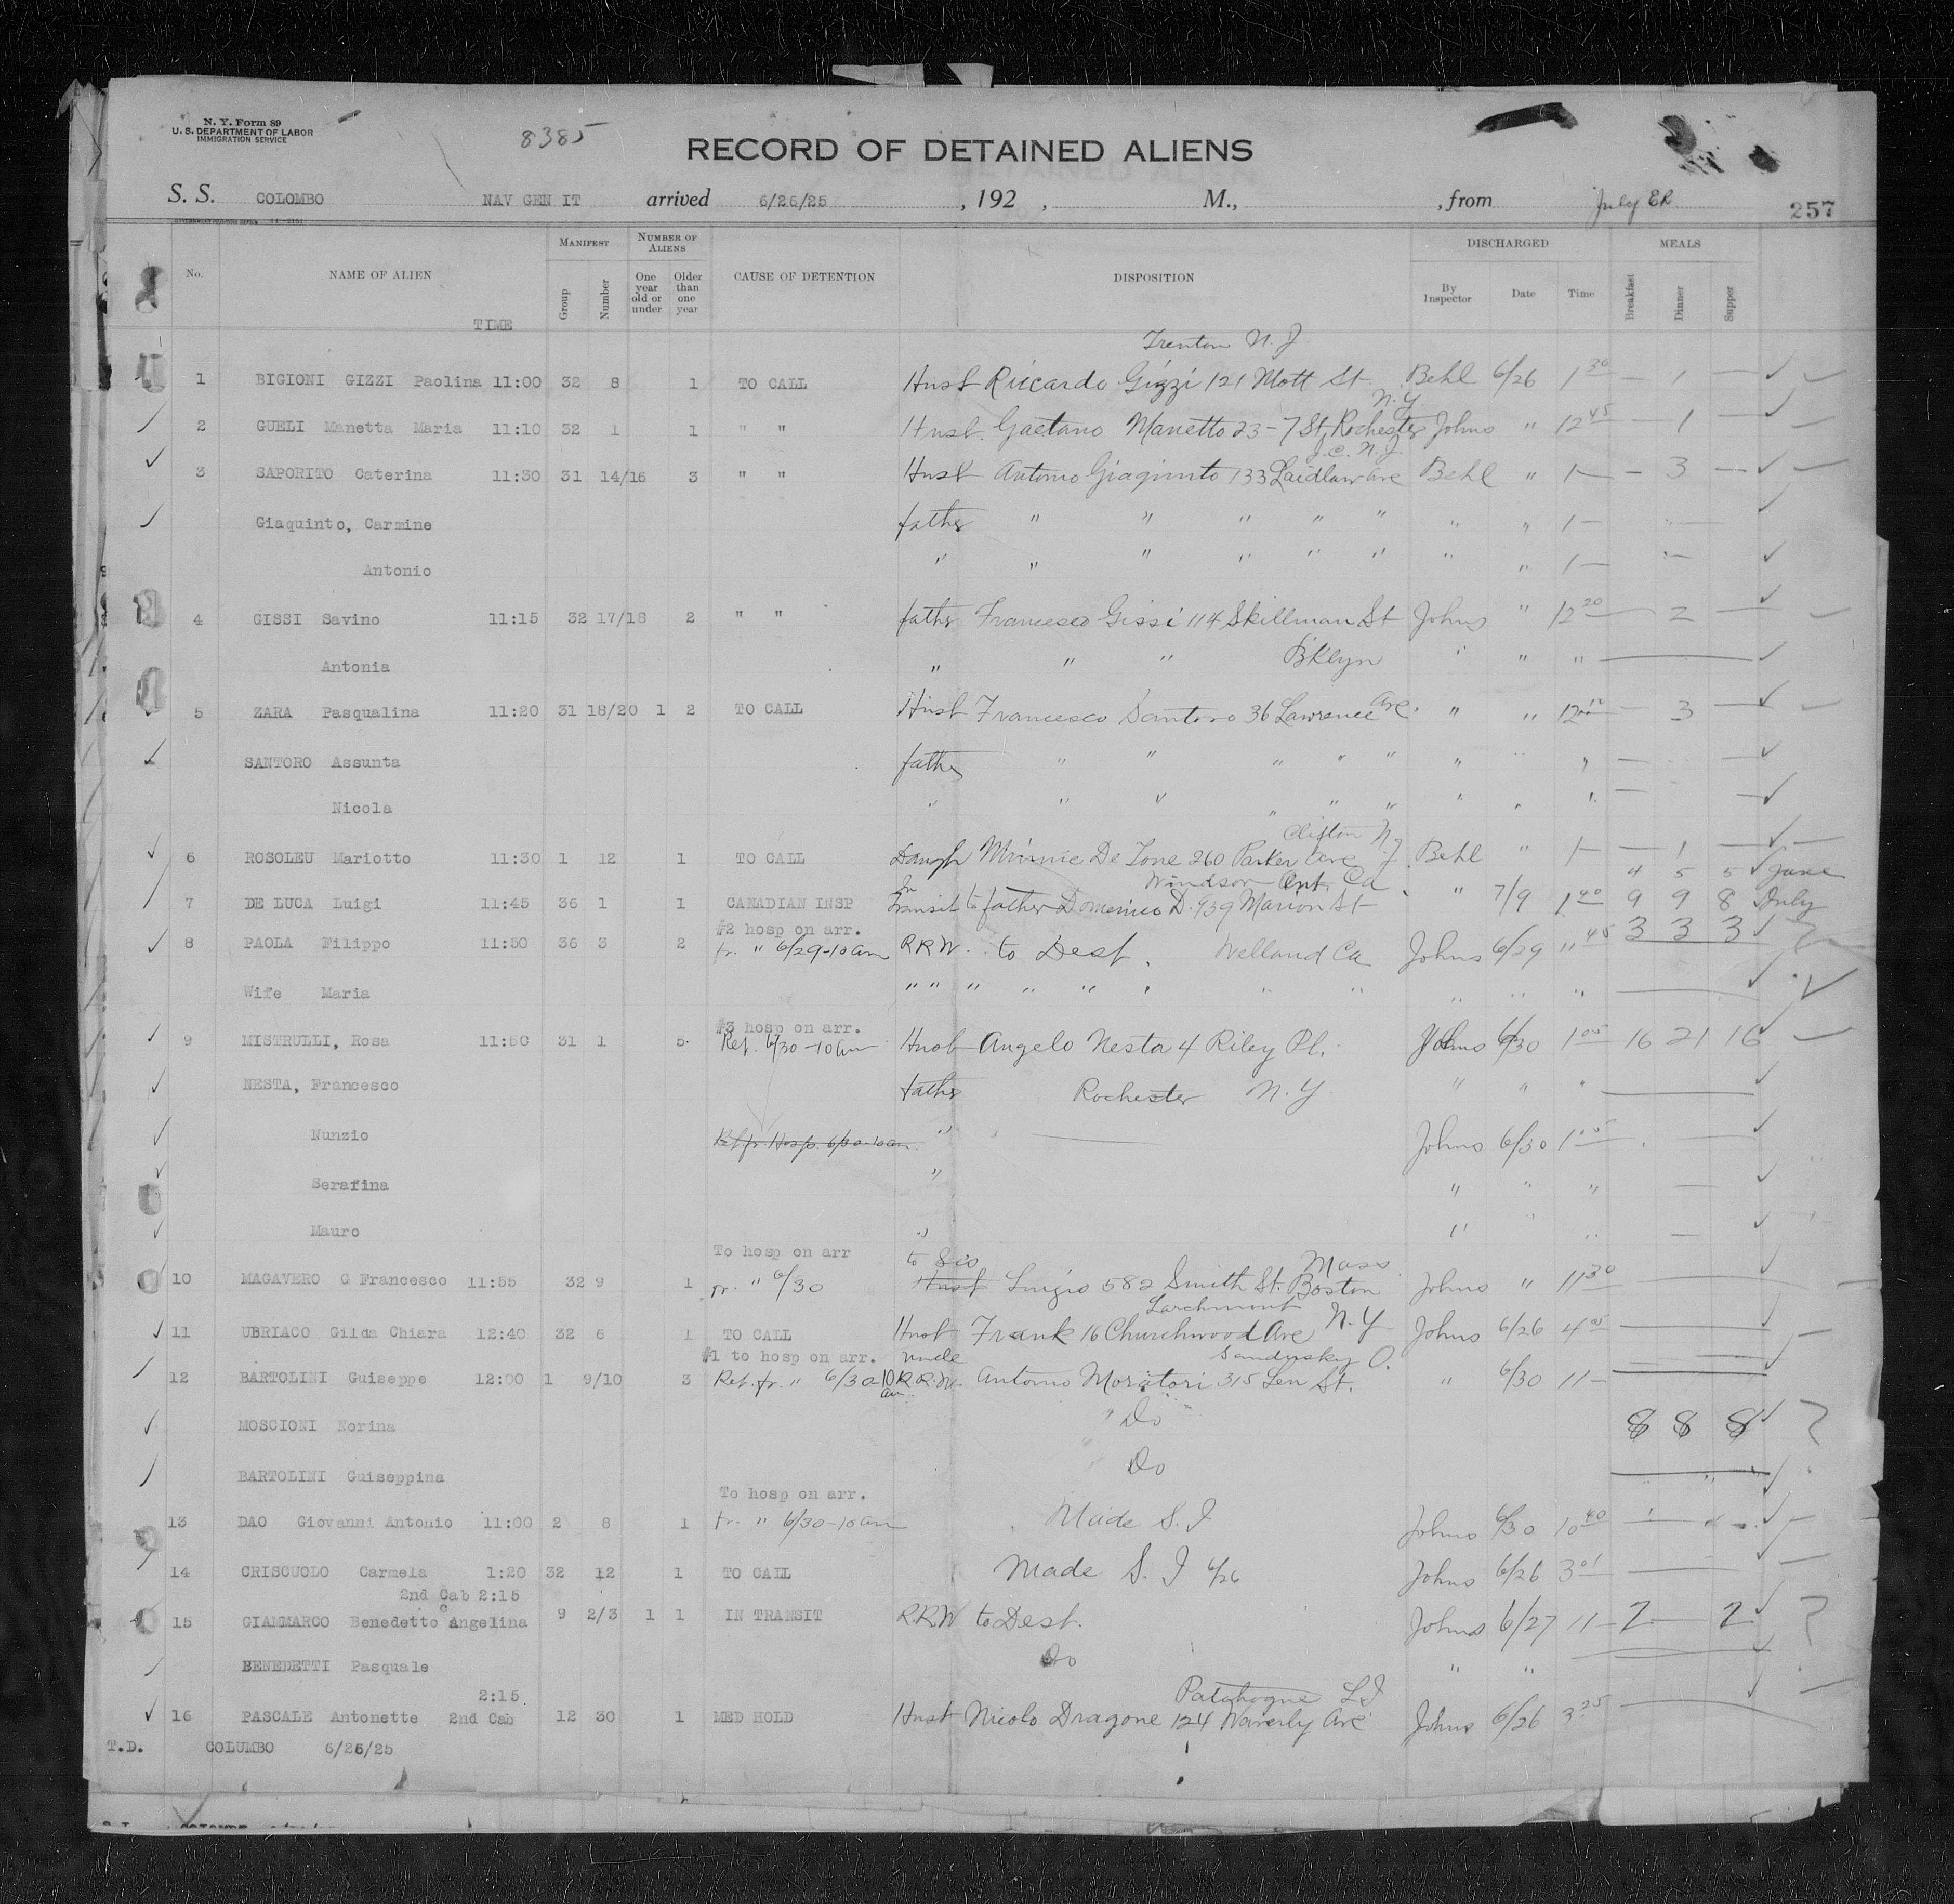 N. Y. Form 89
U. S. DEPARTMENT OF LABOR
IMMIGRATION SERVICE
8385
RECORD OF DETAINED ALIENS
S. S. COLOMBO NAV GEN IT arrived 6/26/25 , 192 , M., , from July ER 257
No. NAME OF ALIEN TIME MANIFEST Group Number NUMBER OF ALIENS One year old or under Older than one year CAUSE OF DETENTION DISPOSITION DISCHARGED By Inspector Date Time MEALS Breakfast Dinner Supper
Trenton N. J.
1 BIGIONI GIZZI Paolina 11:00 32 8 1 TO CALL Husb Riccardo Gizzi 121 Mott St. Behl 6/26 1 30 — 1 —
N.Y.
2 GUELI Manetta Maria 11:10 32 1 1 " " Husb. Gaetano Manetto 23-7 St, Rochester Johns " 12 45 — 1 —
J.C. N.J.
3 SAPORITO Caterina 11:30 31 14/16 3 " " Husb Antonio Giaquinto 133 Laidlaw Ave Behl " 1— — 3 —
Giaquinto, Carmine father " " " " " " " 1—
Antonio " " " " " " " " 1—
4 GISSI Savino 11:15 32 17/18 2 " " father Francesco Gissi 114 Skillman St Johns " 12 20 — 2 —
Antonia " " " B'klyn " " "
5 ZARA Pasqualina 11:20 31 18/20 1 2 TO CALL Husb Francesco Santoro 36 Lawrence Ave. " " 12 — 3 —
SANTORO Assunta father " " " " " " " "
Nicola " " " " " " " " "
Clifton N. J.
6 ROSOLEU Mariotto 11:30 1 12 1 TO CALL Daugh Minnie De Tone 260 Parker Ave Behl " 1— — 1 —
4 5 5 June
In Windsor Ont. Ca
7 DE LUCA Luigi 11:45 36 1 1 CANADIAN INSP Transit to father Domenico D. 939 Marion St " 7/9 1 40 9 9 8 July
#2 hosp on arr.
8 PAOLA Filippo 11:50 36 3 2 fr. " 6/29-10 am R.R.W. to Dest. Welland Ca Johns 6/29 11 45 3 3 3
Wife Maria " " " " " " " " " " "
#3 hosp on arr.
9 MISTRULLI, Rosa 11:50 31 1 5 Ret. 6/30-10 am Husb Angelo Nesta 4 Riley Pl. Johns 6/30 1 05 16 21 16
NESTA, Francesco father Rochester N.Y. " " "
Nunzio Ret fr. Hosp. 6/30-10 am " Johns 6/30 1 05
Serafina " " " "
Mauro " " " "
To hosp on arr to Mass
10 MAGAVERO G Francesco 11:55 32 9 1 fr. " 6/30 Husb Luigio 582 Smith St. Boston Johns " 11 30
Larchmont N.Y
11 UBRIACO Gilda Chiara 12:40 32 6 1 TO CALL Husb Frank 16 Churchwood Ave Johns 6/26 4
#1 to hosp on arr. uncle Sandusky O.
12 BARTOLINI Guiseppe 12:00 1 9/10 3 Ret. fr. " 6/30-10 am R.R.W. Antonio Moratori 315 Len St. " 6/30 11—
MOSCIONI Norina " Do " 8 8 8
BARTOLINI Guiseppina Do
To hosp on arr.
13 DAO Giovanni Antonio 11:00 2 8 1 fr. " 6/30-10 am Made S. I Johns 6/30 10 40
14 CRISCUOLO Carmela 1:20 32 12 1 TO CALL Made S. I 6/26 Johns 6/26 3 01
2nd Cab 2:15
15 GIAMMARCO Benedetto Angelina 9 2/3 1 1 IN TRANSIT R.R.W to Dest. Johns 6/27 11— 2 2
BENEDETTI Pasquale Do " "
2:15 Patchogue L I
16 PASCALE Antonette 2nd Cab 12 30 1 MED HOLD Husb Nicolo Dragone 124 Waverly Ave Johns 6/26 3 25
T.D. COLUMBO 6/26/25